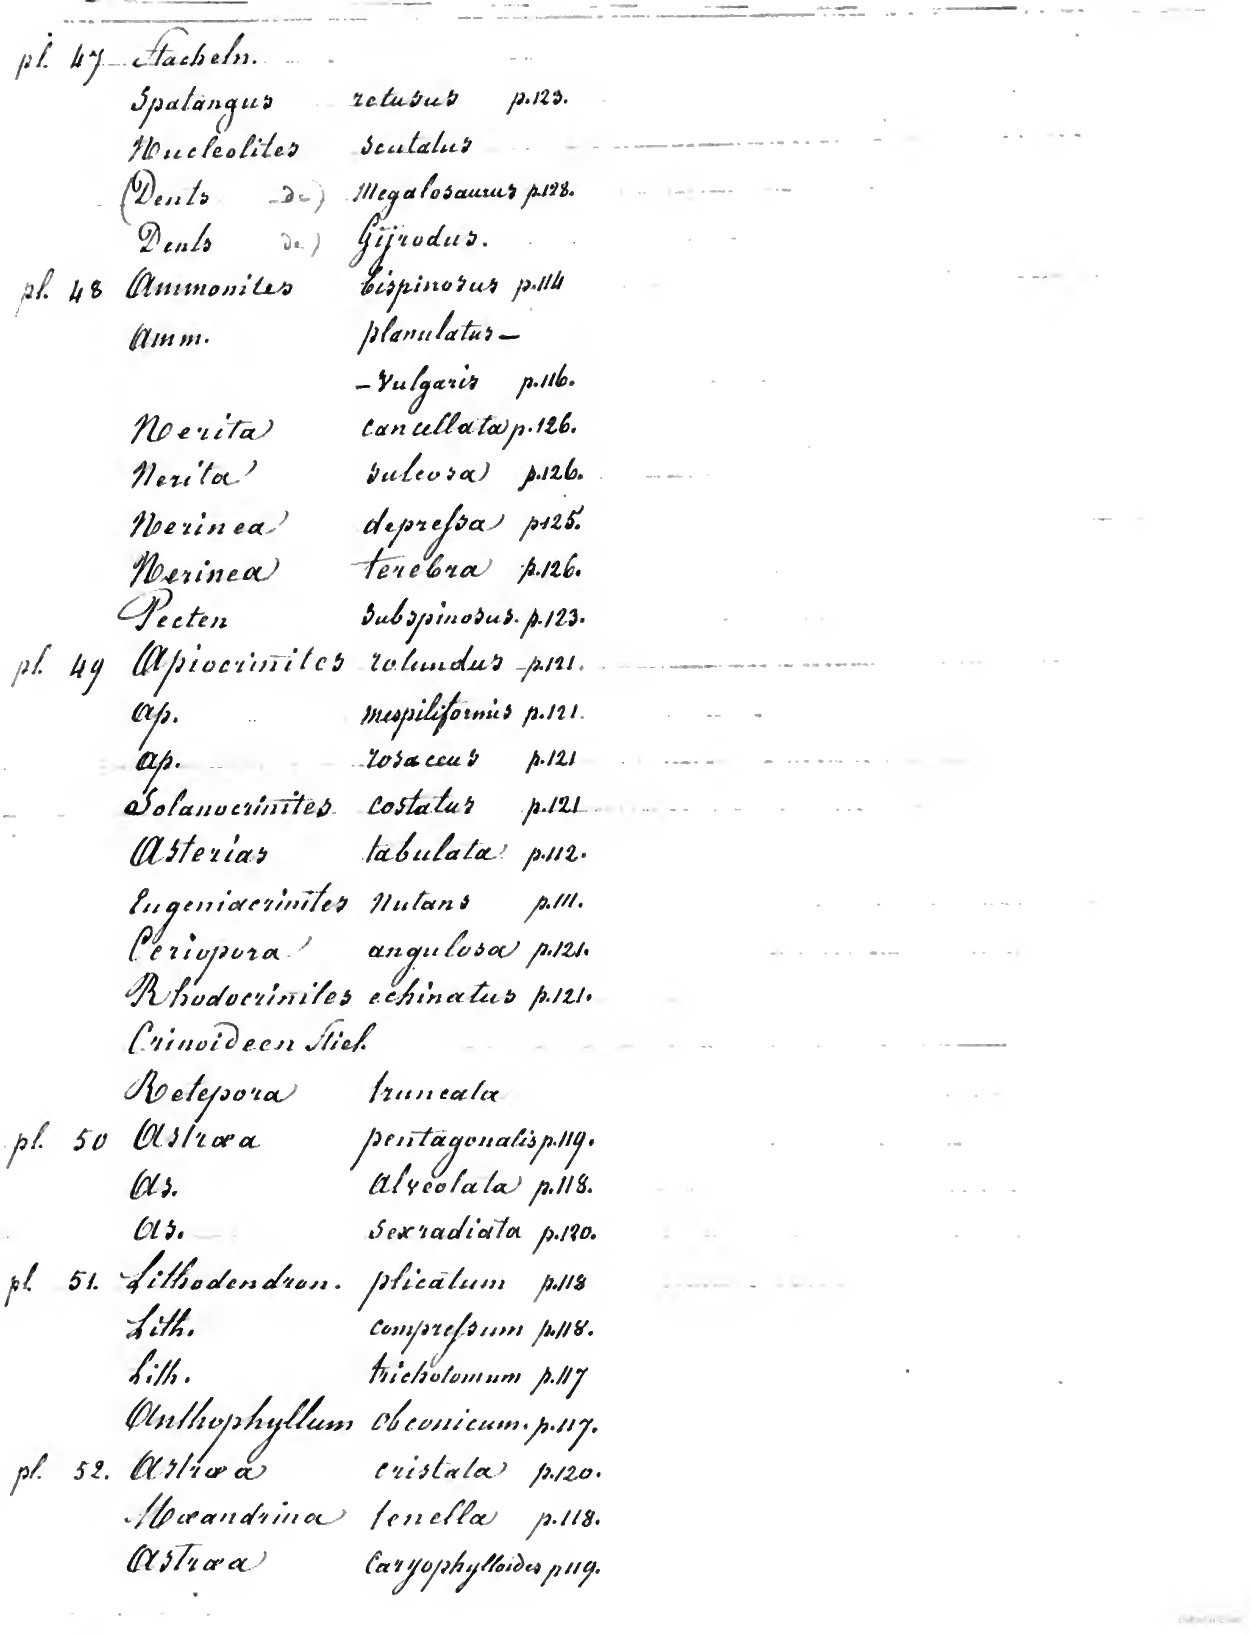 pl. 47 Stacheln.
Spatangus retusus p.123.
Nucleolites scutatus
(Dents de) Megalosaurus p.128.
Dents de) Gijrodus.
pl. 48 Ammonites bispinosus p.114
Amm. planulatus –
– vulgaris p.116.
Nerita cancellata p.126.
Nerita sulcosa p.126.
Nerinea depreſsa p.125.
Nerinea terebra p.126.
Pecten subspinosus. p.123.
pl. 49 Apiocrinites rotundus – p.121.
Ap. mespiliformis p.121.
Ap. rosaceus p.121
Solanocrinites costatus p.121
Asterias tabulata p.112.
Eugeniacrinites nutans p.111.
Ceriopora angulosa p.121.
Rhodocrinites echinatus p.121.
Crinoideen Stiel.
Retepora truncata
pl. 50 Astræa pentagonalis p.119.
As. alveolata p.118.
As. sexradiata p.120.
pl. 51. Lithodendron. plicatum p.118
Lith. compreſsum p.118.
Lith. trichotomum p.117
Anthophyllum obconicum. p.117.
pl. 52. Astræa cristata p.120.
Mæandrina tenella p.118.
Astræa Caryophylloides p 119.